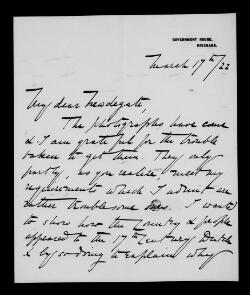 GOVERNMENT HOUSE,
BRISBANE.
March 17th/22
My dear Newdegate,
The photographs have come
& I am grateful for the trouble
taken to get them. They only
partly, as you realise, meet my
requirements which I admit are
rather troublesome ones. I want
to show how the Country & people
appeared to the 17th Century Dutch
& by so doing to explain why